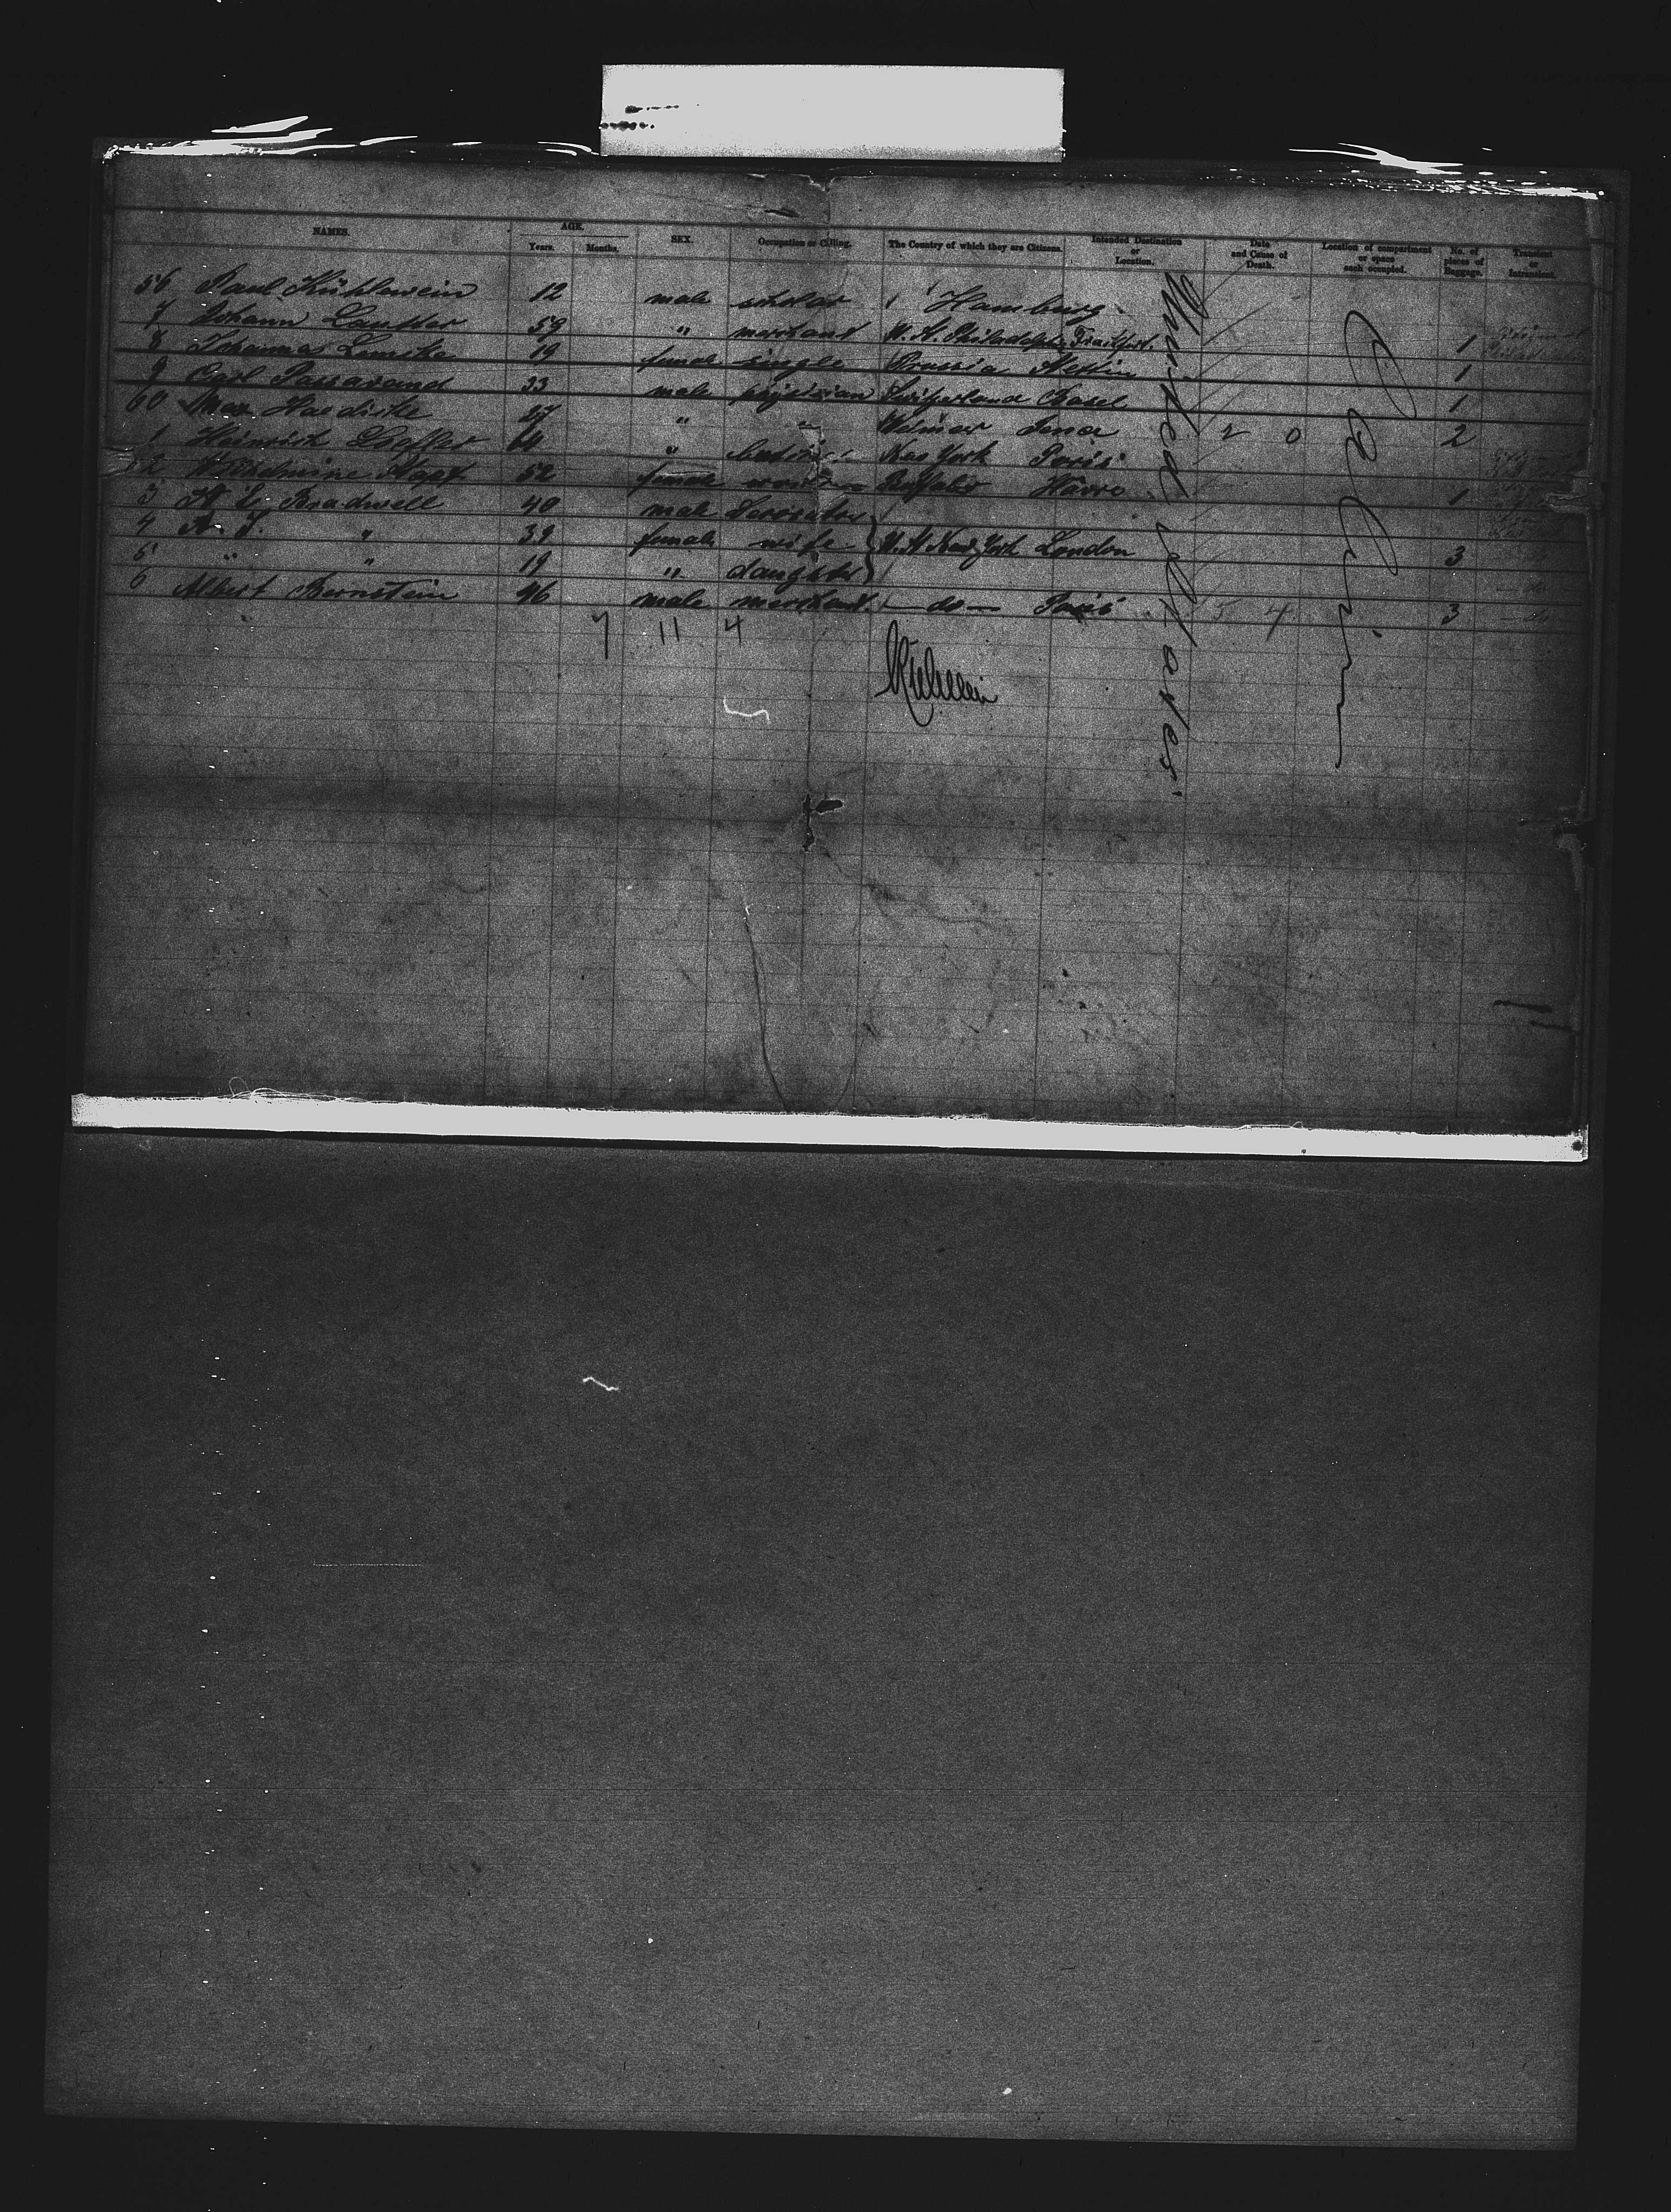 NAMES. AGE. SEX. Occupation or Calling. The Country of which they are Citizens. Intended Destination or Location. Date and Cause of Death. Location of compartment or space each occupied. No. of pieces of Baggage. Transient or Intransient.
Years. Months.
56 Paul Kühlewein 12 male scholar Hamburg
7 Johann 59 " merchant U. S. Philadelphia Frankfurt. 1
8 Johanna 19 female single Prussia Stettin 1
9 Carl Passavand 33 male physician Switzerland Basel 1
60 Max Haedicke 27 " " Weimar Jena 2 0 2
1 Heinrich Loeffler 64 " New York Paris
2 Wilhelmine 52 female Havre 1
3 E. Bradwell 40 male
4 " 39 female wife U. S. New York London 3
5 " " 19 " daughter
6 Albert Bernstein 46 male merchant — do — Paris 5 4 3 — do —
7 11 4
United States
Cabin